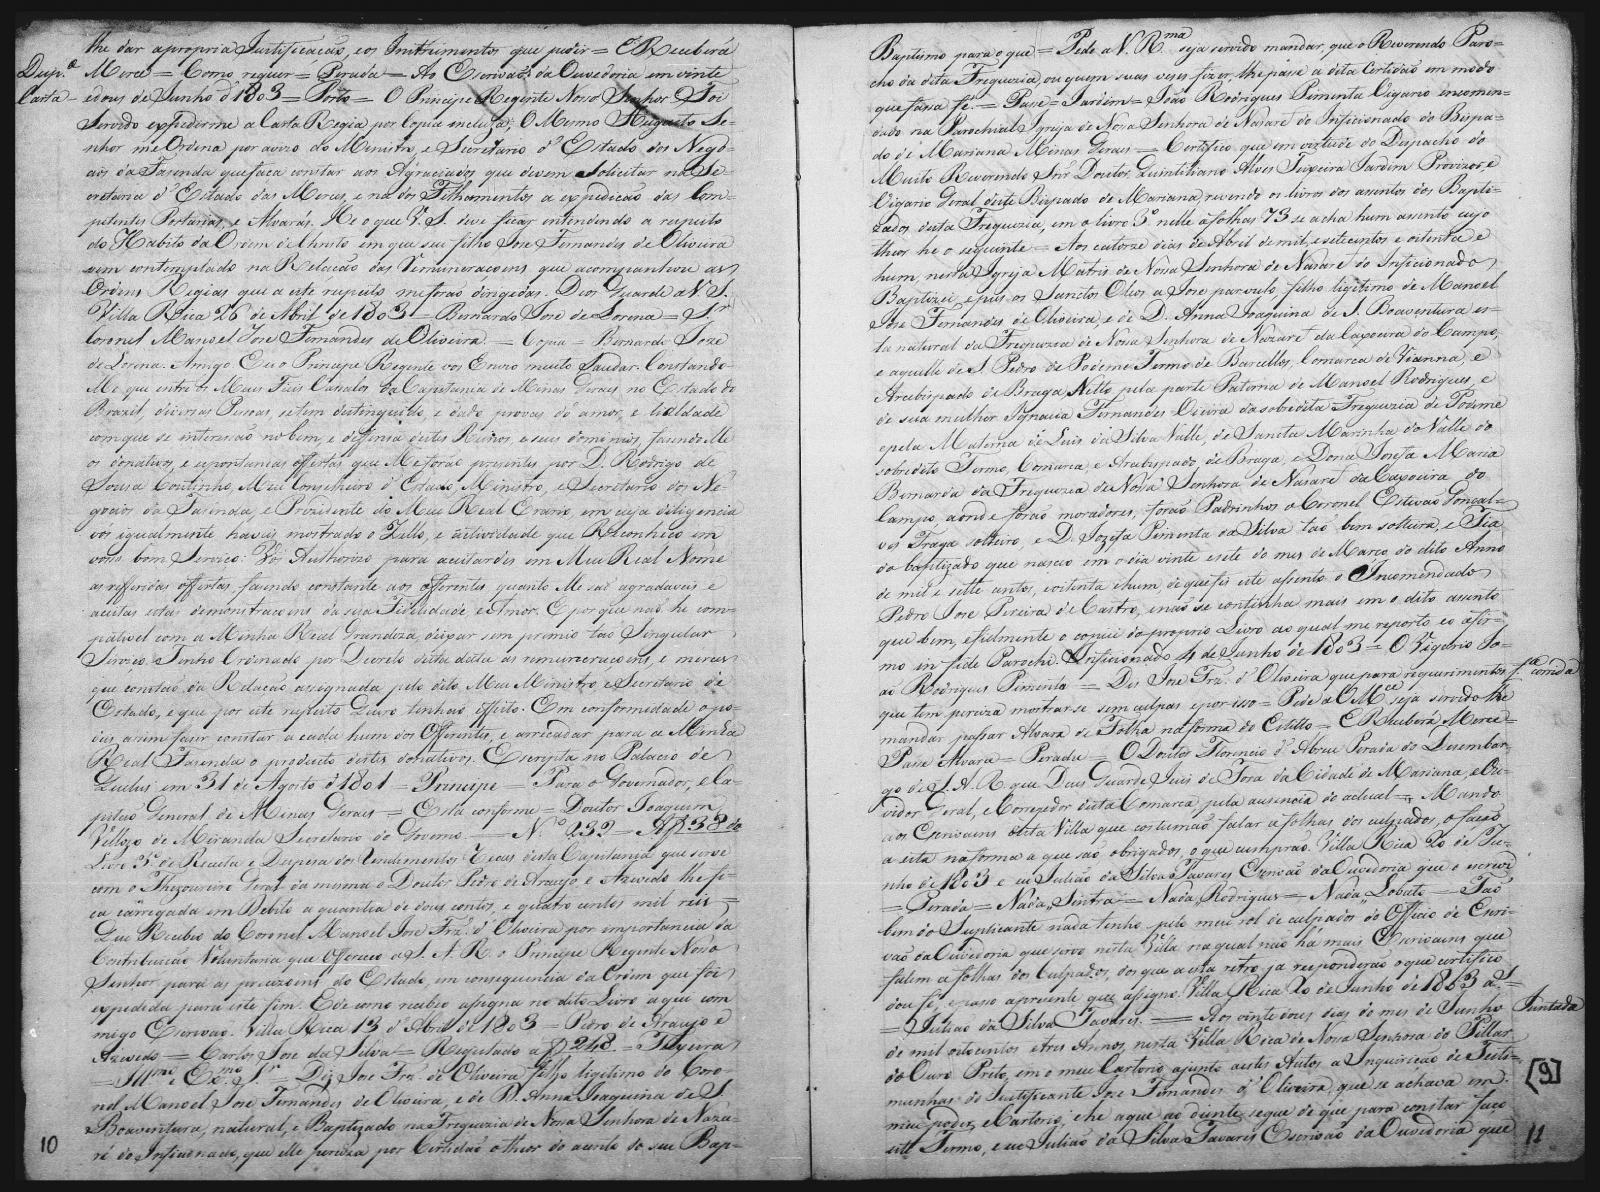 lhe dar apropria Justificação, eos Instrumentos que pedir = E Receberá
Desp.º Merce = Como requer = Perada = Ao Escrivaõ da Ouvedoria em vinte
Carta - edous de Junho d'1803 = Porto = O Principe Regente Nosso Senhor Foi
Servido expedirme a Carta Regia por Copia incluza; O Mesmo Augusto Se-
nhor me Ordena por avizo do Ministro, e Secretario d'Estado dos Nego-
cios da Fasenda que faça constar aos Agraciados que devem Solicitar na Se-
cretaria d'Estado das Merces, e na dos Filhamentos a expedicaõ das Com-
pitentes Portarias, e Alvarás. He o que V. S. deve ficar intendendo a respeito
do Habito da Ordem de Christo em que seu filho Jose Fernandes de Oliveira
vem contemplado na Relacaõ das Remuneracoens que acompanhou as
Ordens Regias que a este respeito me foraõ dirigidas. Deos Guarde a V. S.
Villa Rica 26 de Abril de 1803 = Bernardo Jose de Lorena = S.r
Coronel Manoel Jose Fernandes de Oliveira. = Copia = Bernardo Joze
de Lorena. Amigo Eu o Principe Regente vos Envio muito Saudar. Constando-
Me que entre os Meus Fieis Vassalos da Capitania de Minas Geraes no Estado do
Brazil, diversas Pessoas, setem distinguido, e dado provas do amor, e lialdade
comque se interessaõ no bem, e deffensa destes Reinos, e seus dominios, fasendo Me
os donativos, e espontaneas offertas que Me foraõ presentes por D. Rodrigo de
Sousa Coutinho, Meu Conselheiro d'Estado, Ministro, e Secretario dos Ne-
gocios da Fasenda, e Prezidente do Meu Real Erario, em cuja diligencia
vós igualmente haveis mostrado o Zello, e actividade que Reconheço em
vosso bom Serviço: Vos Authorizo para aceitardes em Meu Real Nome
as refferidas offertas, fasendo constante aos offerentes quanto Me saõ agradaveis e
aceitas estas demonstracoens da sua Fidelidade e Amor. E por que naõ he com-
pativel com a Minha Real Grandeza, deixar sem premio taõ Singular
Serviço. Tenho Ordenado por Decreto desta data as remuneracoens, e merces
que constaõ da Relacaõ assignada pelo dito Meu Ministro e Secretario de
Estado, e que por este respeito Quero tenhaõ effeito. Em conformidade o po-
deis assim faser constar a cada hum dos Offerentes, e arrecadar para a Minha
Real Fasenda o producto destes donativos. Escripta no Palacio de
Queluz em 31 de Agosto d'1801 = Principe = Para o Governador, e Ca-
pitaõ General de Minas Geraes = Está conforme = Doutor Joaquim
Vellozo de Miranda Secretario do Governo. = N.º 232 = Af 38 do
Livro 3º de Receita e Despesa dos Rendimentos Reaes desta Capitania que serve
com o Thezoureiro Geral da mesma o Doutor Pedro de Araujo, e Azevedo lhe fi-
ca carregada em Debito a quantia de dous contos, e quatro centos mil reis =
Que Recebeo do Coronel Manoel Jose Frz.' d'Oliveira por importancia da
Contribuiçaõ Voluntaria que Offereceo a S. A. R. o Principe Regente Nosso
Senhor para as precizoens do Estado, em consequencia da Ordem que foi
expedida para este fim. E de como recebeo assigna no dito Livro aqui com
migo Escrivaõ. Villa Rica 13 d'Abril de 1803 = Pedro de Araujo e
Azevedo = Carlos Jose da Silva = Registado af 248 = Teixeira
= Ill.mo e Ex.mo S.r = Diz Jose Frz.' de Oliveira, filho ligitimo do Coro-
nel Manoel Jose Fernandes de Oliveira, e de D. Anna Joaquina de S.
Boaventura, natural, e Baptizado na Freguezia de Nossa Senhora de Naza-
re do Inficionado, que elle perciza por Certidaõ otheor do acento do seu Bap-
10
Baptismo para o que = Pede a V. R.ma seja servido mandar, que o Reverendo Paro-
cho da dita Freguezia, ou quem suas veses fizer, lhe passe a dita Certidaõ em modo
que fassa fe. = Passe = Jardim = João Rodrigues Pimenta Vigario encomen-
dado na Parochial Igreja de Nossa Senhora de Nazaré do Inficionado do Bispa-
do de Mariana Minas Geraes = Certifico que em virtude do Despacho do
Muito Reverendo Snr' Doutor Quintiliano Alves Teixeira Jardim Provizor, e
Vigario Geral deste Bispado de Mariana, revendo os livros dos asentos dos Bapti-
zados desta Freguezia, em o livro 3º nelle a folhas 73 se acha hum asento cujo
theor he o seguinte = Aos catorze dias de Abril de mil, e setecentos e oitenta e
hum, nesta Igreja Matris de Nossa Senhora de Nazaré do Inficionado
Baptizei, epus os Sanctos Oleos a Jose parvulo, filho ligitimo de Manoel
Jose Fernandes de Oliveira, e de D. Anna Joaquina de S. Boaventura es-
ta natural da Freguezia de Nossa Senhora de Nazaré da Caxoeira do Campo,
e aquelle de S. Pedro de Podeme Termo de Barcellos, Comarca de Vianna, e
Arcebispado de Braga, Netto pela parte Paterna de Manoel Rodrigues, e
de sua mulher Ignacia Fernandes Vieira da sobredita Freguezia de Podeme
epela Materna de Luis da Silva Valle, de Sancta Marinha do Valle do
sobredito Termo, Comarca, e Arcebispado de Braga, e Dona Josefa Maria
Bernarda da Freguezia de Nossa Senhora de Nazaré da Caxoeira do
Campo, aonde foraõ moradores, foraõ Padrinhos o Coronel Estevaõ Gonçal-
ves Fraga solteiro, e D. Jozefa Pimenta da Silva taõ bem solteira, e Tia
do baptizado que nasceo em o dia vinte esete do mes de Março do dito Anno
de mil e sette centos, eoitenta ehum, de que fis este assento o Incomendado
Pedro Jose Pereira de Castro, enaõ se continha mais em o dito asento
que bem, efielmente o copiei do proprio Livro ao qual me reporto eo afir-
mo in fide Parochi. Inficionado 4 de Junho de 1803 = O Vigario Jo-
aõ Rodrigues Pimenta = Dis Jose Frz.' d'Oliveira que para requerimentos f.ª corrida
que tem perciza mostrar-se sem culpas epor isso = Pede a VM.ce seja servido lhe
mandar passar Alvara de Folha na forma do Estillo = E Receberá Merce =
Passe Alvara = Perada = O Doutor Florencio d'Abreu Perada do Desembar-
go de S. A. R. que Deus Guarde Juis de Fora da Cidade de Mariana, e Ou-
vidor Geral, e Corregedor desta Comarca, pela ausencia do actual = Mando
aos Escrivaens desta Villa que costumaõ falar a folhas dos culpados, o façaõ
a esta na forma a que saõ obrigados, o que cumpraõ. Villa Rica 20 de Ju-
nho de 1803 e eu Juliaõ da Silva Tavares Escrivaõ da Ouvedoria que o escrevi
= Perada = Nada, Sintra = Nada, Rodrigues = Nada, Lobato = Taõ
bem do Suplicante nada tenho pelo meu rol de culpados do Officio de Escri-
vaõ da Ouvedoria que sirvo nesta Villa na qual naõ há mais Escrivaens que
falem a folhas dos Culpados, dos que a esta retro ja responderaõ o que certifico
dou fé, e passo a presente que asigno. Villa Rica 20 de Junho de 1803 a.s
= Juliaõ da Silva Tavares. = Aos vinte dous dias do mes de Junho Juntada
de mil oitocentos etres Annos, nesta Villa Rica de Nossa Senhora do Pillar
do Ouro Preto, em o meu Cartorio, ajunto aestes Autos a Inquiriçaõ de Teste-
munhas do Justificante Jose Fernandes d'Oliveira que se achava em
meu poder, e Cartorio, ehe a que ao diante segue de que para constar faço
este Termo, e eu Juliaõ da Silva Tavares Escrivaõ da Ouvedoria que
[9]
11